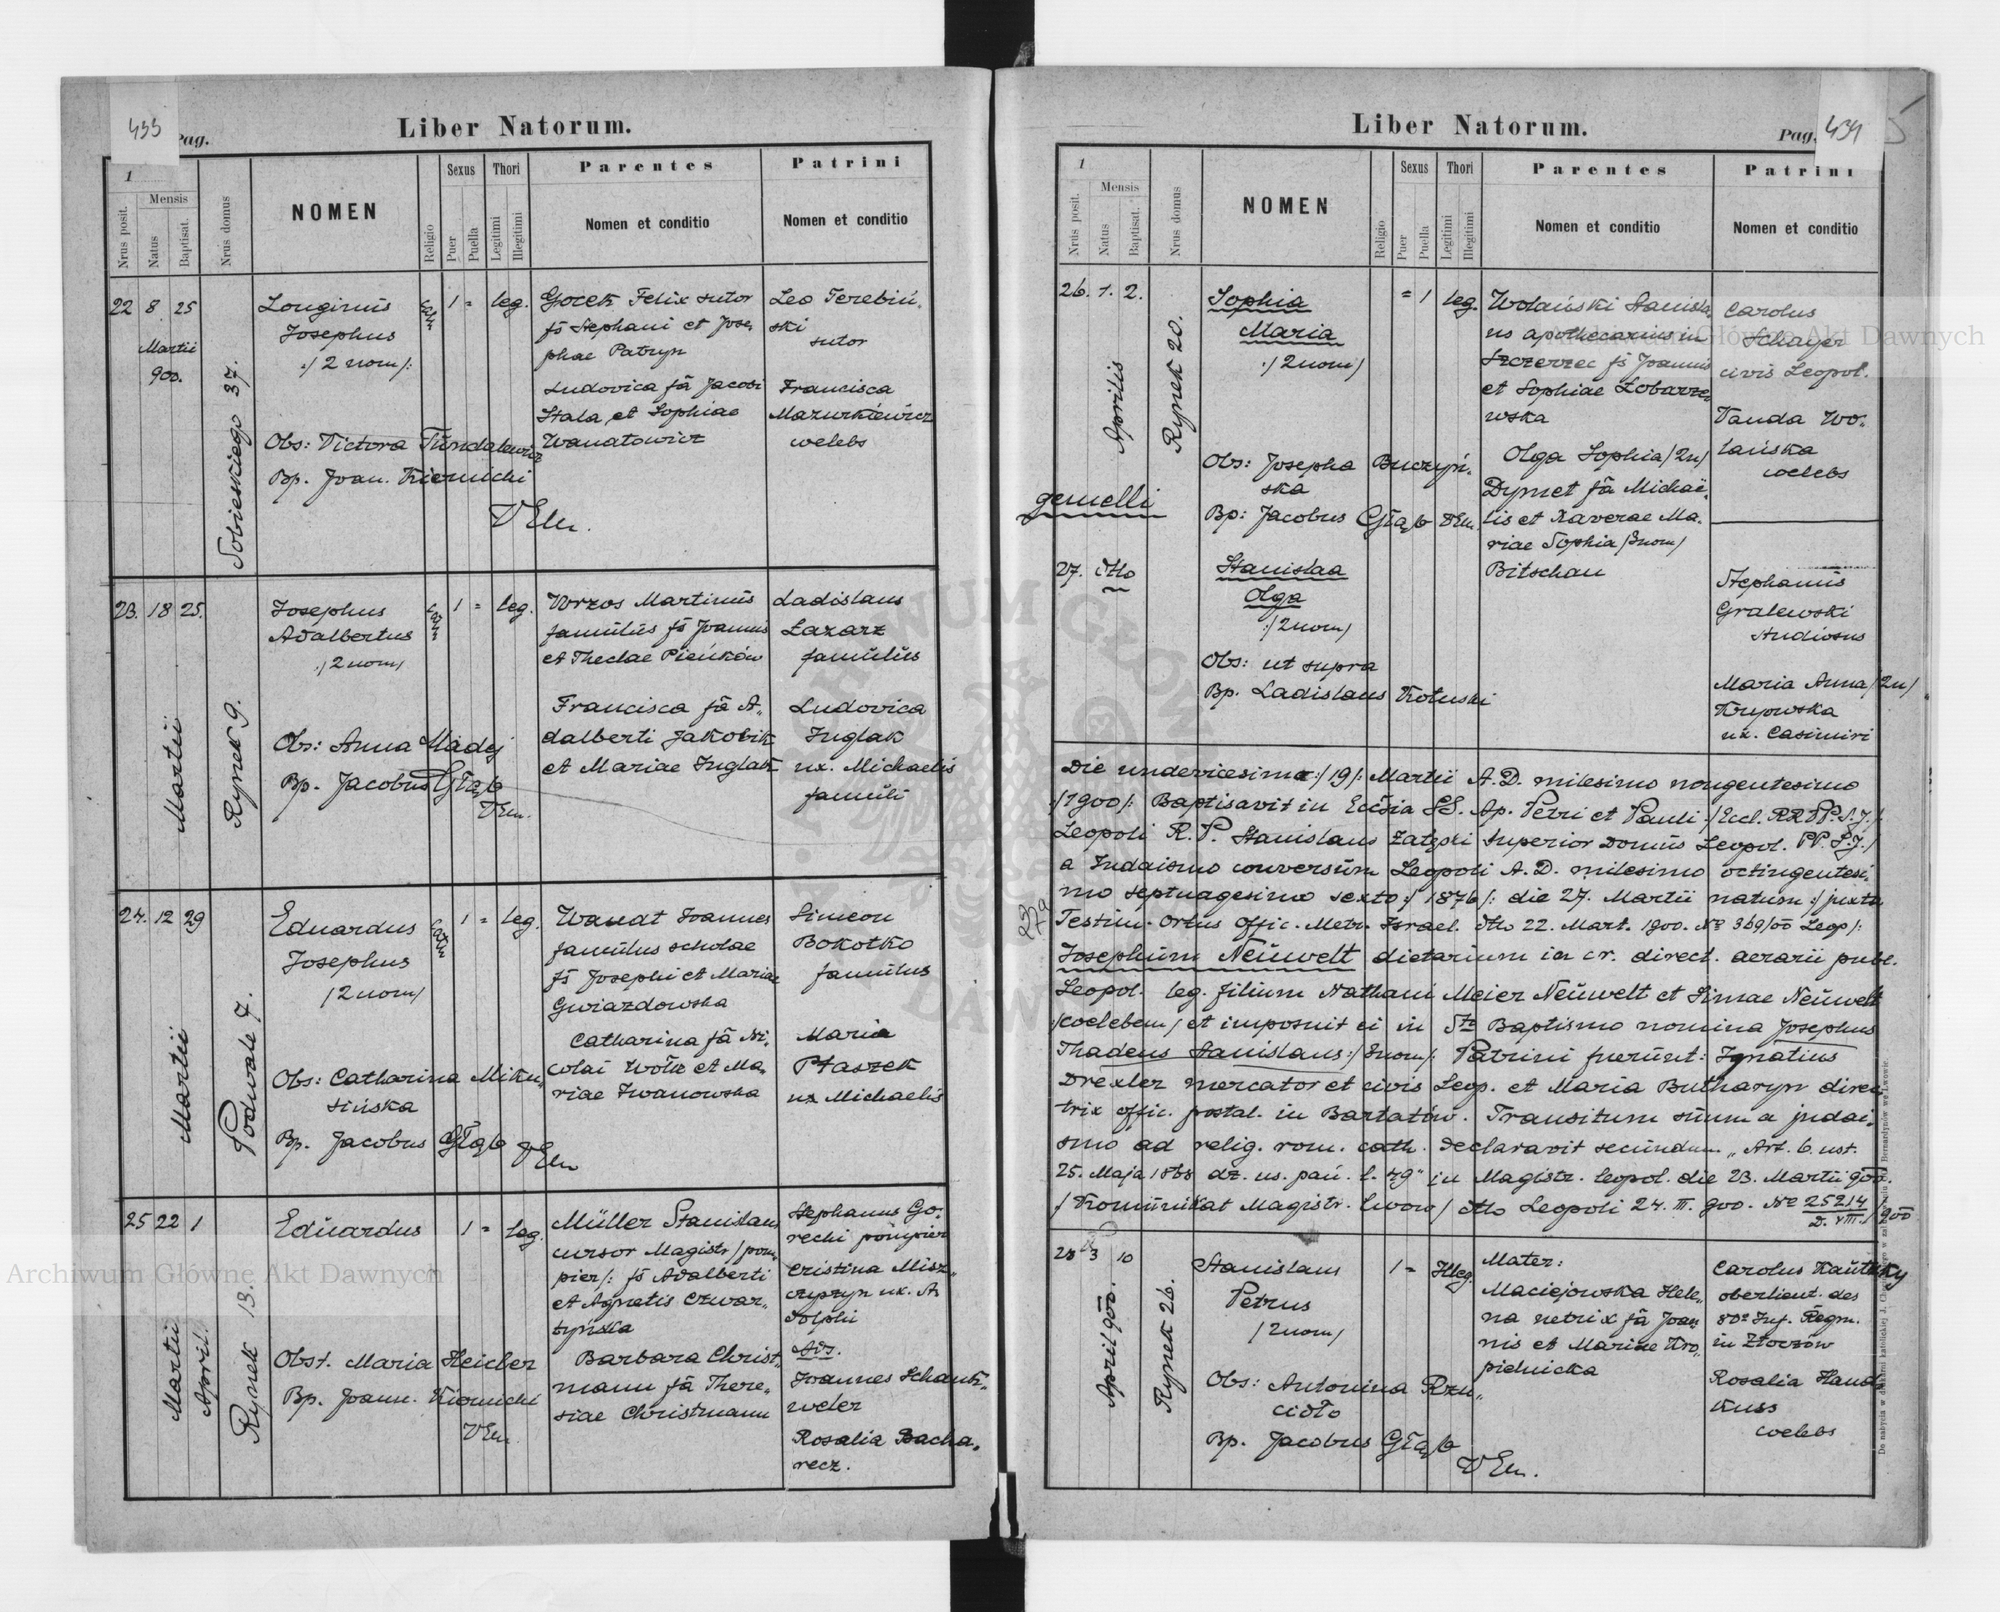 433
Pag.
Liber Natorum.
1
Nrus posit.
Mensis
Natus
Baptisat.
Nrus domus
NOMEN
Religio
Sexus
Puer
Puella
Thori
Legitimi
Illegitimi
Parentes
Nomen et conditio
Patrini
Nomen et conditio
22 8 25
Martii
900.
Sobieskiego 37.
Longinus
Josephus
:/2 nom/:
Obs: Victora
Bp. Joan. Kiernicki
1 = leg.
Gocek Felix sutor
fs Stephani et Jose„
phae Patryn
Ludovica fa Jacobi
Stala et Sophiae
Wanatowicz
Leo Terebiń„
ski
sutor
Francisca
Mazurkiewicz
coelebs
23. 18 25.
Martii
Rynek 9.
Josephus
Adalbertus
:/2 nom/
Obs: Anna Madej
Bp. Jacobus Głąb
1 = leg.
Wrzos Martinus
famulus fs Joannis
et Theclae Pieńków
Francisca fa A„
dalberti Jakobik
et Mariae Inglak
Ladislaus
Łazarz
famulus
Ludovica
Inglak
ux. Michaelis
famuli
24. 12 29
Martii
Podwale 7.
Eduardus
Josephus
/2 nom/
Obs: Catharina Miku„
sińska
Bp. Jacobus Głąb
1 = leg.
Wanat Joannes
famulus scholae
fs Josephi et Mariae
Gwiazdowska
Catharina fa Ni„
colai Wołk et Ma„
riae Iwanowska
Simeon
Bokotko
famulus
Maria
Ptaszek
ux Michaelis
25 22 1
Martii
April.
Rynek 13.
Eduardus
Obst. Maria Heicler
Bp. Joann. Kiernicki
1 = leg.
Müller Stanislaus
cursor Magistr/pom„
pier/: fs Adalberti
et Agnetis Czwar„
tyńska
Barbara Christ„
mann fa There„
siae Christmann
Stephanus Go„
recki pompier
Cristina Misz„
czyszyn ux. A
dolphi
Ads.
Joannes Schank„
weler
Rosalia Bacha„
recz.
Liber Natorum.
Pag. 434
1
Nrus posit.
Mensis
Natus
Baptisat.
Nrus domus
NOMEN
Religio
Sexus
Puer
Puella
Thori
Legitimi
Illegitimi
Parentes
Nomen et conditio
Patrini
Nomen et conditio
26. 1. 2.
Aprilis
Rynek 20.
Sophia
Maria
:/2 nom/
Obs: Josepha Buczyń„
ska
Bp: Jacobus Głąb
gemelli
= 1 leg.
Wolański Stanisla„
us apothecarius in
Szczerzec fs Joannis
et Sophiae Łobarze„
wska
Olga Sophia/2n/
Dymet fa Michaë„
lis et Xaverae Ma„
riae Sophia/3nom/
Bitschan
Carolus
Schayer
civis Leopol.
Vanda Wo„
lańska
coelebs
27. dtto
Stanislaa
Olga
:/2 nom/
Obs: ut supra
Bp. Ladislaus Kotuski
Stephanus
Gralewski
studiosus
Maria Anna/2n/
Kryowska
ux. Casimiri
Die undevicesima:/19/: Martii A.D. milesimo nongentesimo
:/1900/: Baptisavit in Ecclsia SS. Ap. Petri et Pauli:/Eccl. RR PP. S.J./
Leopoli R.P. Stanislaus Załęski Superior Domus Leopol. PP. S.J./
a Iudaismo conversum Leopoli A.D. milesimo octingentesi„
mo septuagesimo sexto:/1876/: die 27. Martii natum:/juxta
Testim. Ortus Offic. Metr. Israel. dtto 22. Mart. 1900. No 369/00 Leop/:
Josephum Neuwelt dietarium in cr. direct. aerarii publ.
Leopol. leg. filium Nathani Meier Neuwelt et Simae Neuwelt
/coelebem/ et imposuit ei in Sto Baptismo nomina Josephus
Thadeus Stanislaus:/3nom/: Patrini fuerunt: Ignatius
Drexler mercator et civis Leop. et Maria Butharyn direc„
trix offic. postal. in Bartatów. Transitum suum a judai„
smo ad relig. rom. cath. declaravit secundum „Art. 6 ust.
25. Maja 1868 dz. us. pań. l. 49" in Magistr. leopol. die 23. Martii 900.
/Komunikat Magistr. Lwow/ dtto Leopoli 24. III. 900. No 25214/D. VIII./900
28 3 10
April 900.
Rynek 26.
Stanislaus
Petrus
/2 nom/
Obs: Antonina Rzu„
cidło
Bp. Jacobus Głąb
1 = Illeg.
Mater:
Maciejowska Hele„
na netrix fa Joan„
nis et Mariae Kro„
pielnicka
Carolus Kautzky
oberlieut. des
80o Inf. Regm.
in Złoczów
Rosalia Hand„
Kuss
coelebs
Archiwum Główne Akt Dawnych
Archiwum Główne Akt Dawnych